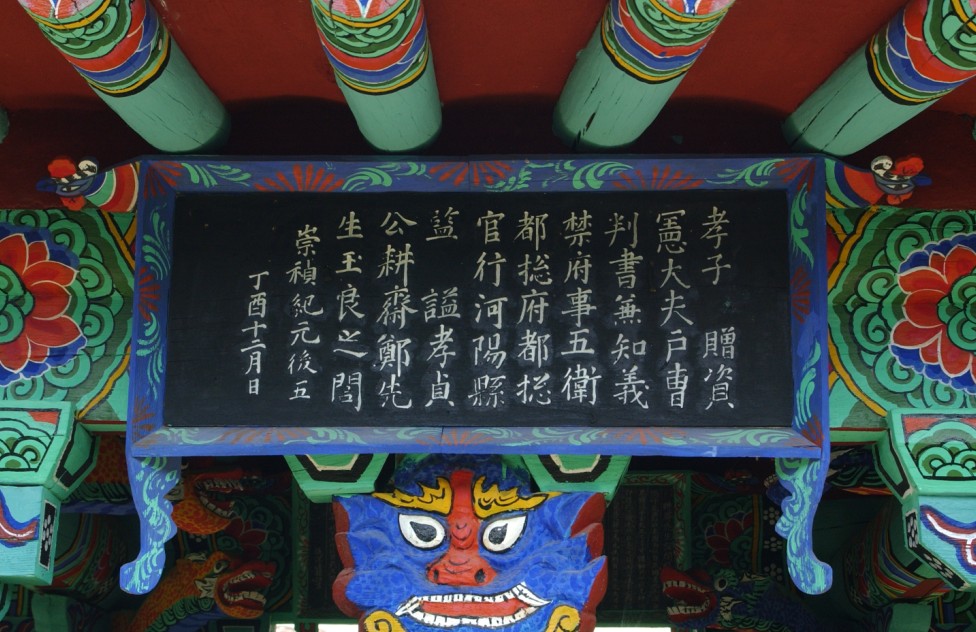 孝子 贈資
憲大夫戶曹
判書兼知義
禁府事五衛
都摠府都摠
官行河陽縣
監 謚孝貞
公耕齋鄭先
生玉良之閭
崇禎紀元後五
丁酉十二月日